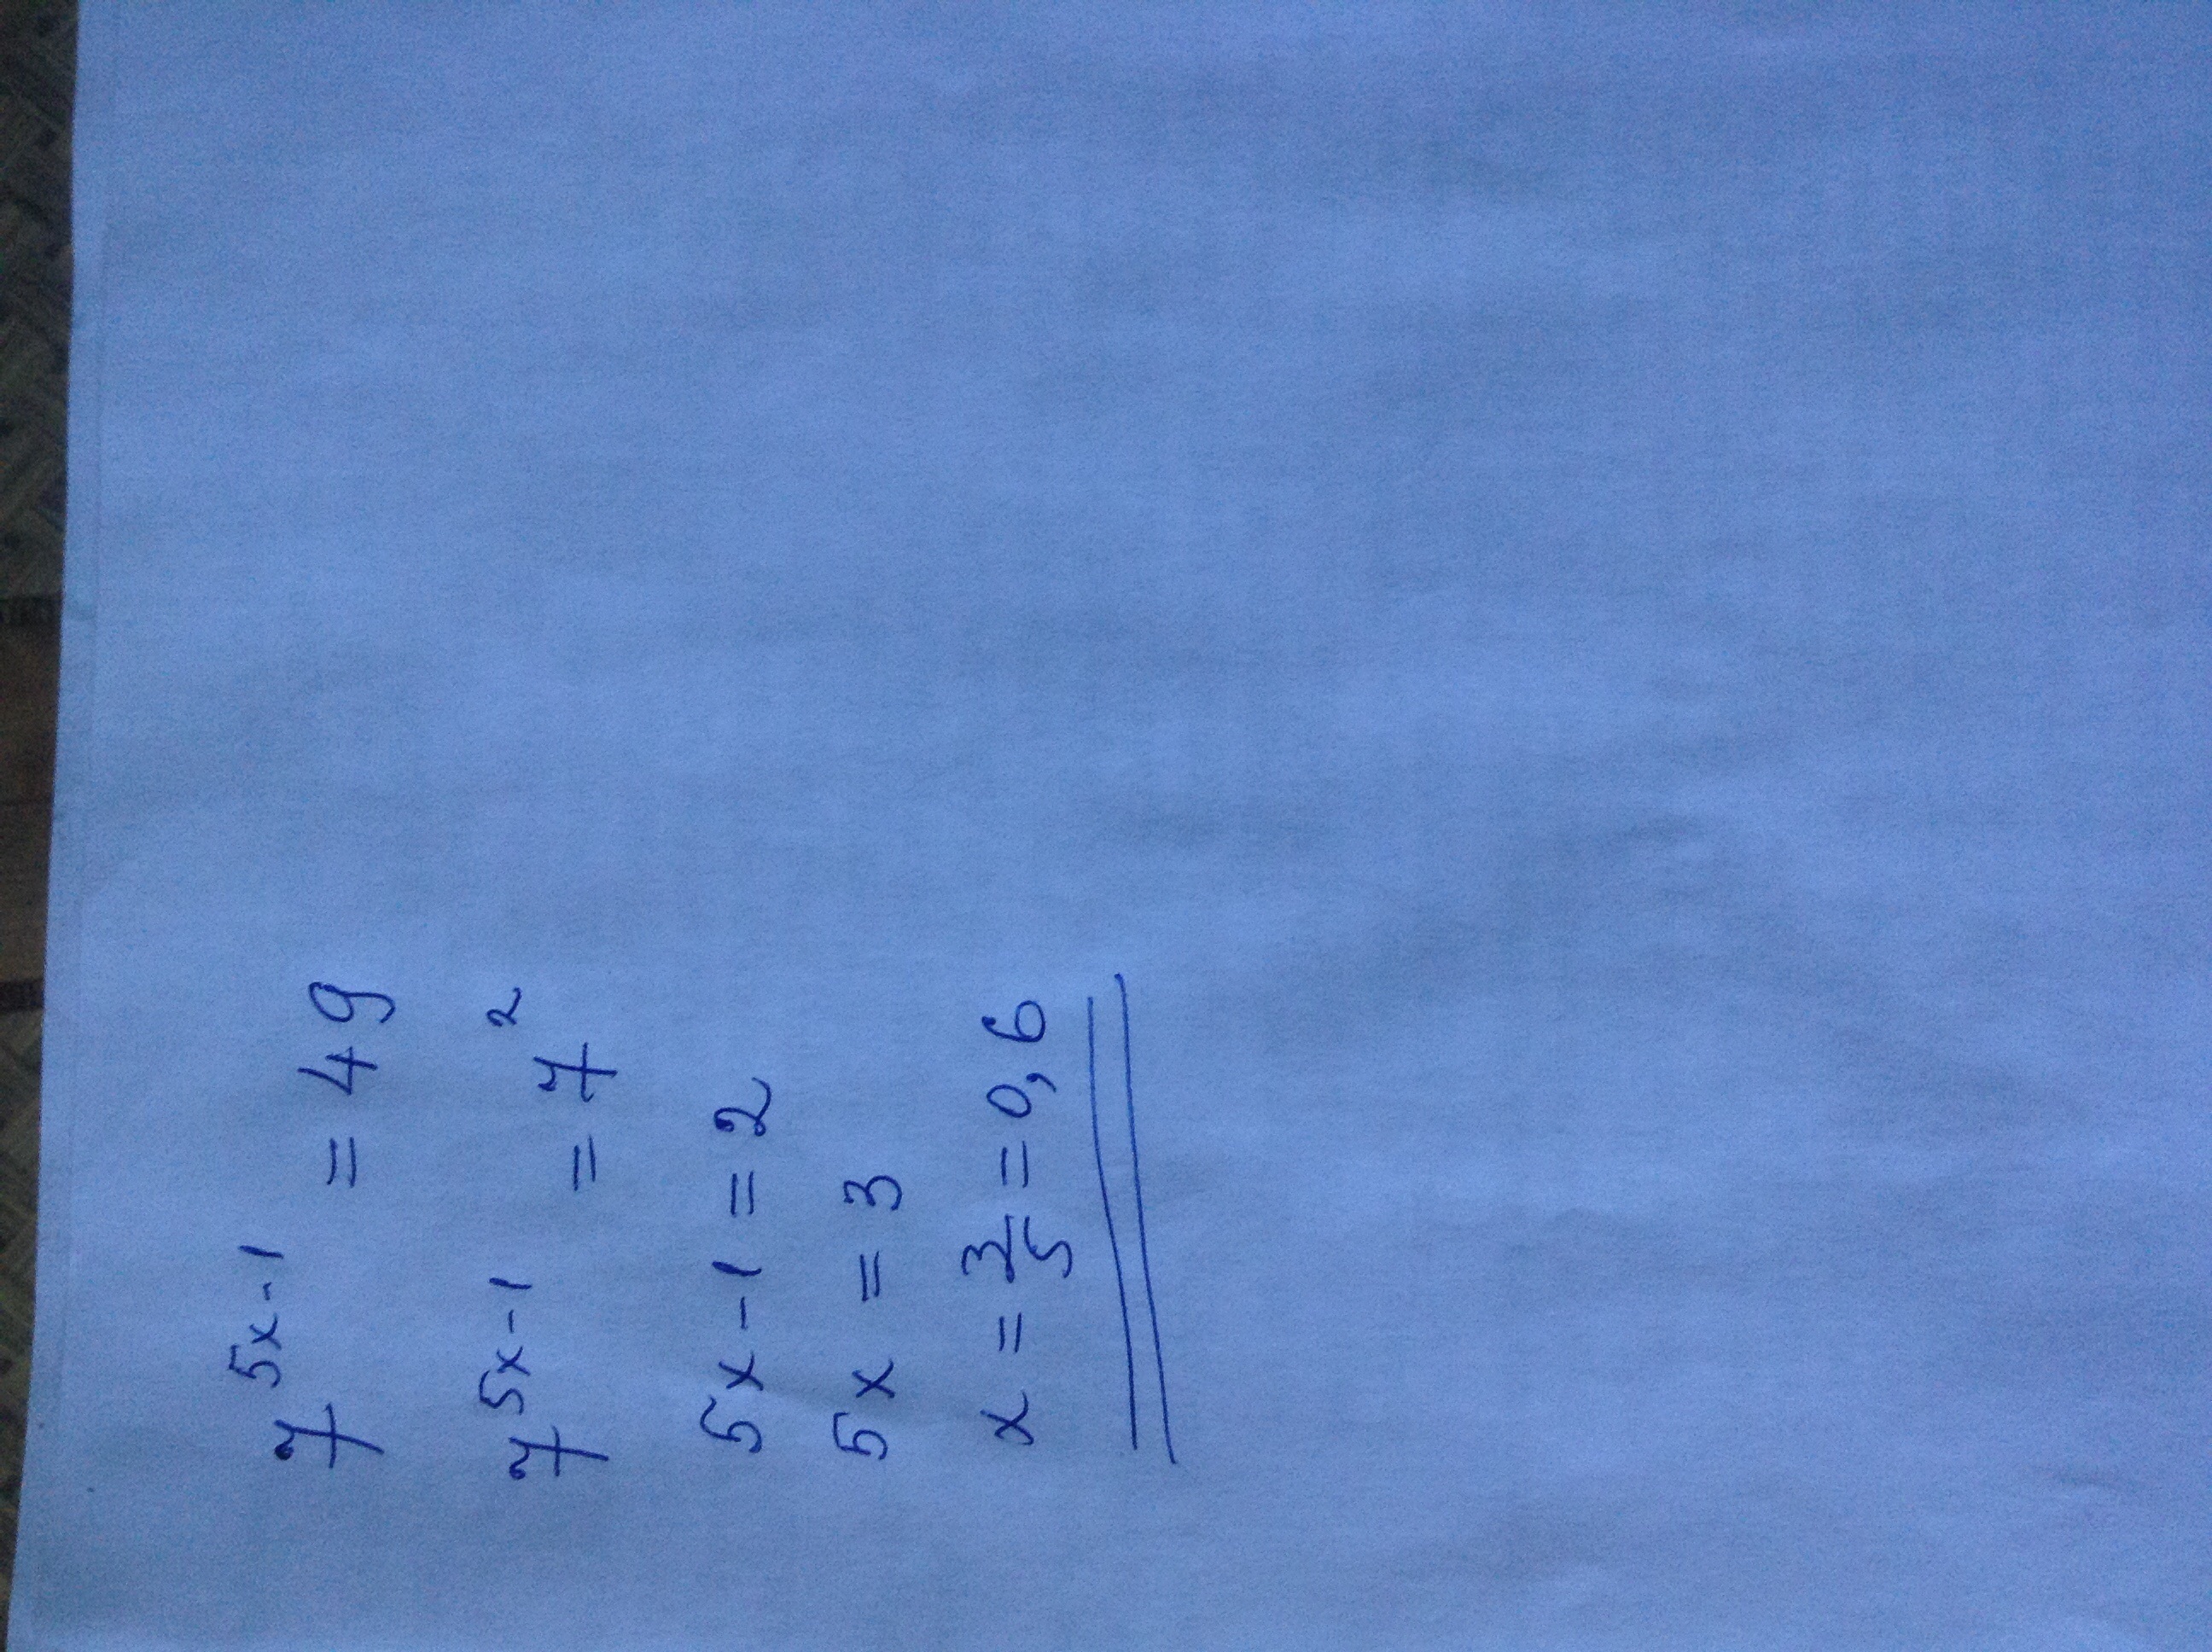 7^{5x-1} = 49
7^{5x-1} = 7^2
5x-1=2
5x = 3
x = 3/5 = 0,6